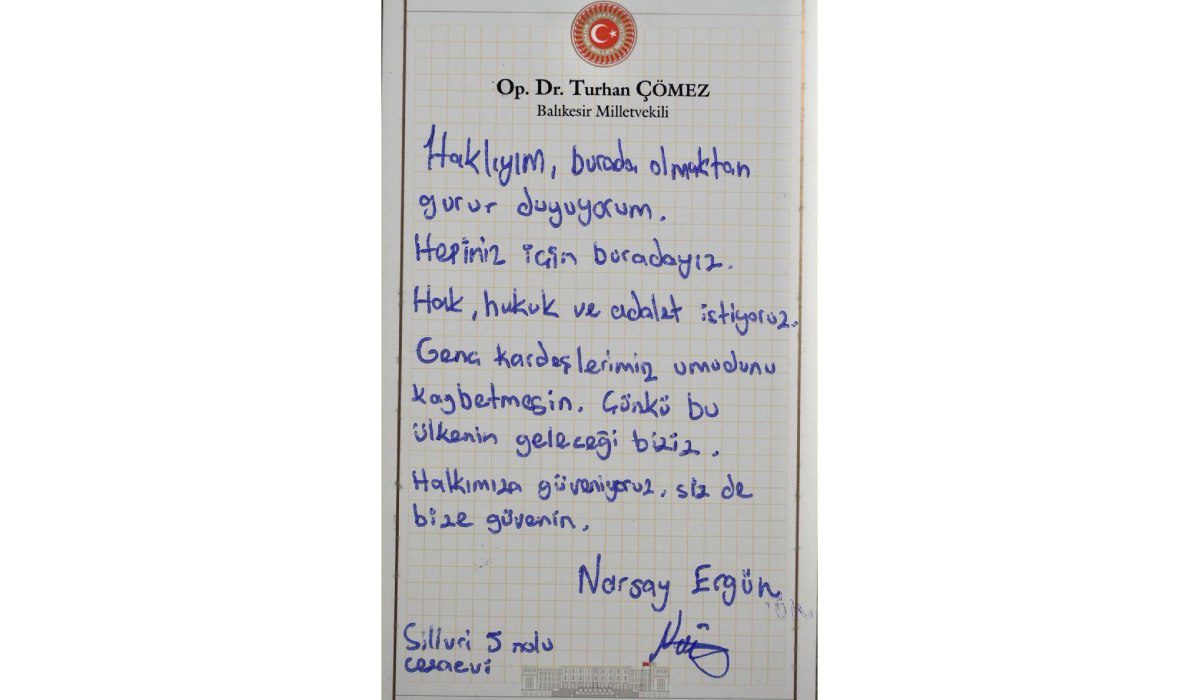 Op. Dr. Turhan ÇÖMEZ
Balıkesir Milletvekili
Haklıyım, burada olmaktan
gurur duyuyorum.
Hepiniz için buradayız.
Hak, hukuk ve adalet istiyoruz.
Genç kardeşlerimiz umudunu
kaybetmesin. Çünkü bu
ülkenin geleceği biziz.
Halkımıza güveniyoruz, siz de
bize güvenin.
Narsay Ergün
Silivri 5 nolu
cezaevi